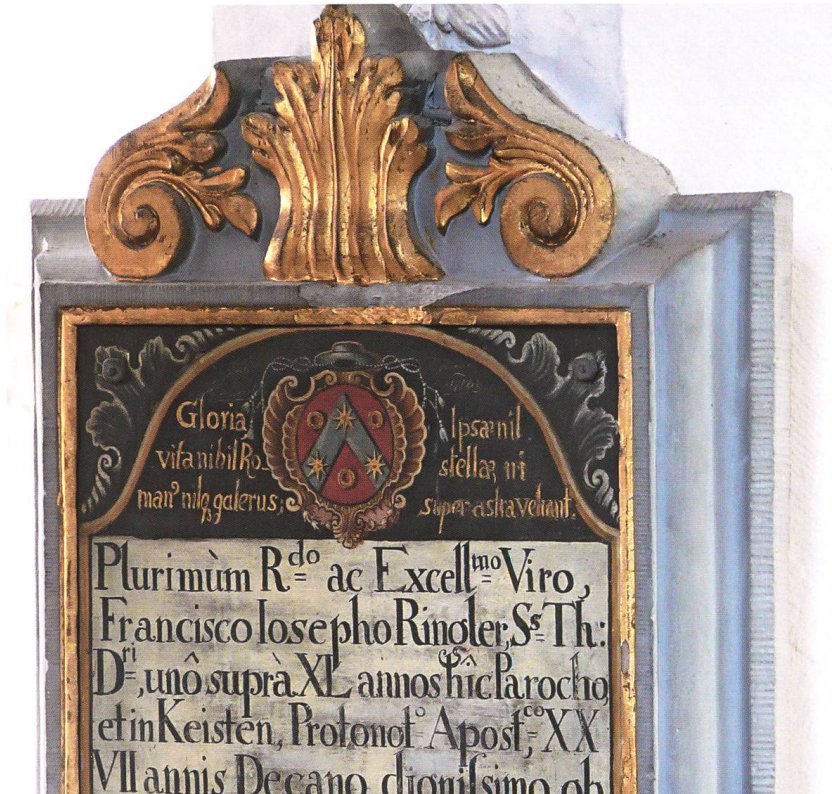 Gloria
vita nihil Ro-
man⁹ nilq₃ galerus;
Ipsa nil
stellæ, ni
super astra vehant.
Plurimùm R.do ac Excell.mo Viro,
Francisco Iosepho Ringler, Ss. Th:
D.ri, unô suprà XL annos hîc Parocho,
et in Keisten, Protonot.o Apost.co, XX
VII annis Decano dignissimo ob